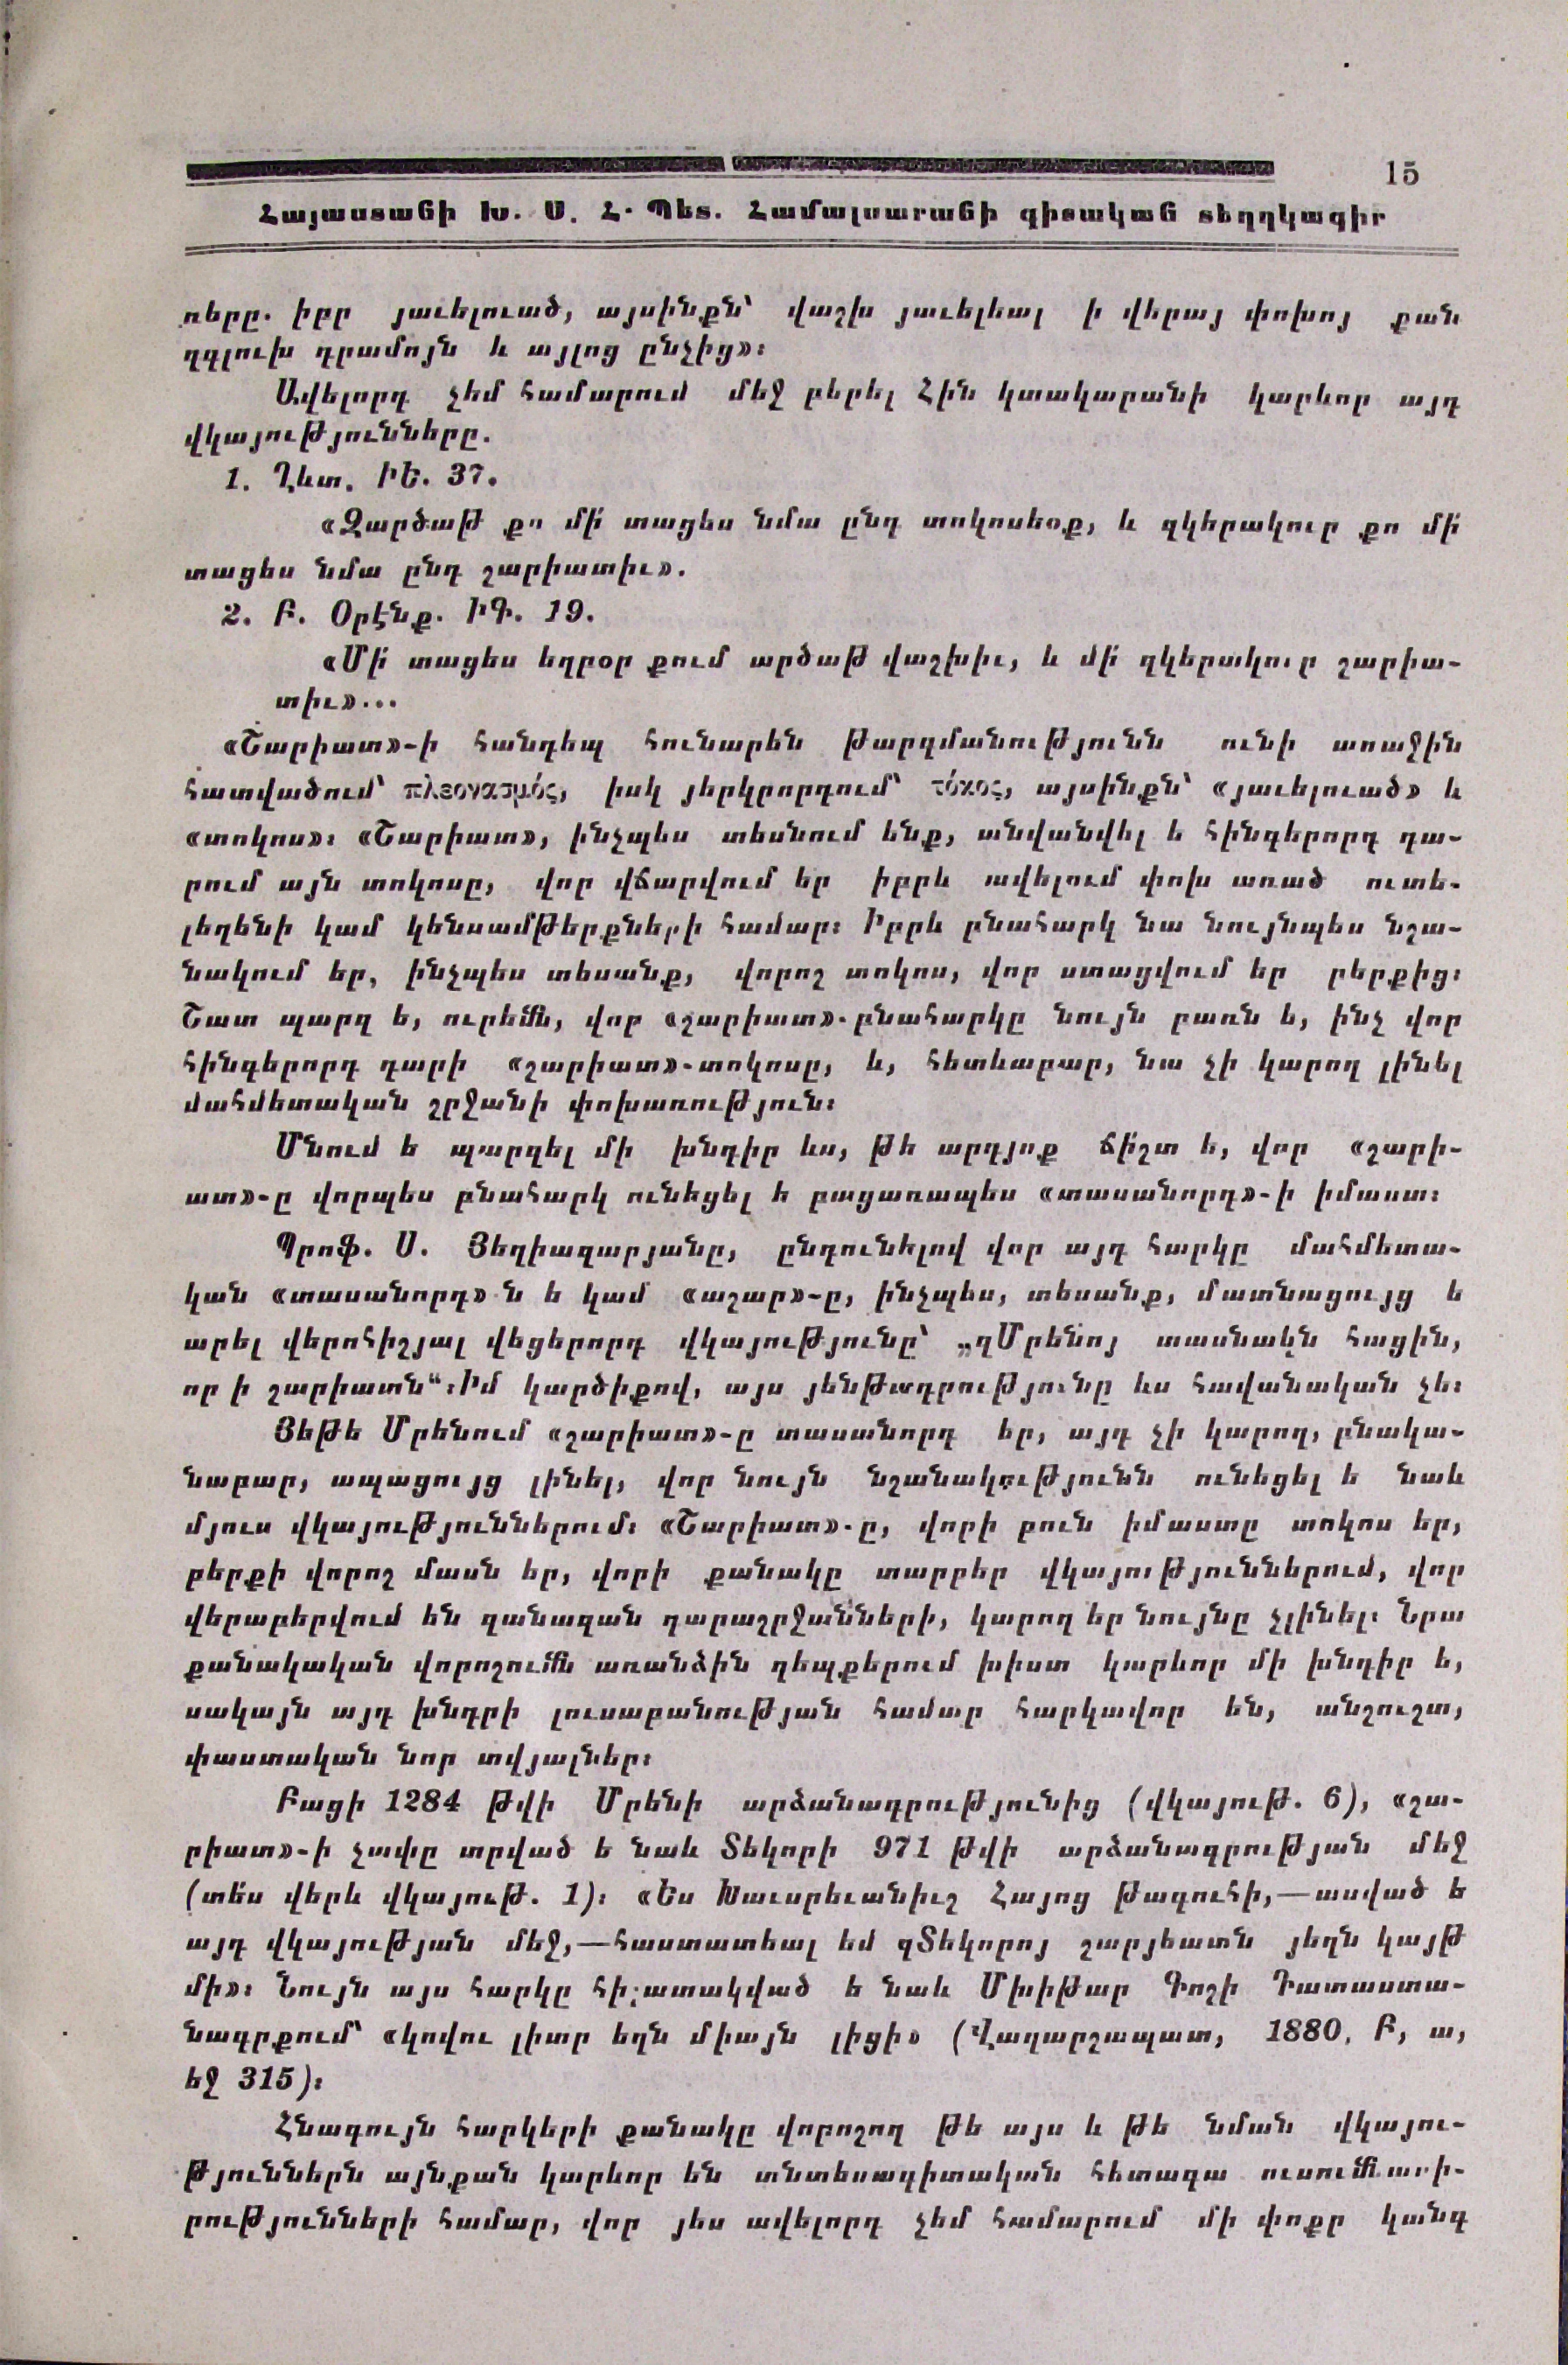 15
Հայաստանի Խ. Ս. Հ. Պետ. Համալսարանի գիտական տեղեկագիր
ռները. իբր յաւելուած, այսինքն՝ վաշխ յաւելեալ ի վերայ փոխոյ քան
զգլուխ դրամոյն և այլոց ընչից»։
Ավելորդ չեմ համարում մեջ բերել Հին կտակարանի կարևոր այդ
վկայությունները.
1. Ղևտ. ԻԵ. 37.
«Զարծաթ քո մի՛ տացես նմա ընդ տոկոսեօք, և զկերակուր քո մի՛
տացես նմա ընդ շարիատիւ».
2. Բ. Օրէնք. ԻԳ. 19.
«Մի՛ տացես եղբօր քում արծաթ վաշխիւ, և մի՛ զկերակուր շարիա-
տիւ»...
«Շարիատ»-ի հանդեպ հունարեն թարգմանությունն ունի առաջին
հատվածում՝ πλεονασμός, իսկ յերկրորդում՝ τόκος, այսինքն՝ «յաւելուած» և
«տոկոս»։ «Շարիատ», ինչպես տեսնում ենք, անվանվել ե հինգերորդ դա-
րում այն տոկոսը, վոր վճարվում եր իբրև ավելում փոխ առած ուտե-
լեղենի կամ կենսամթերքների համար։ Իբրև բնահարկ նա նույնպես նշա-
նակում եր, ինչպես տեսանք, վորոշ տոկոս, վոր ստացվում եր բերքից։
Շատ պարզ ե, ուրեմն, վոր «շարիատ»-բնահարկը նույն բառն ե, ինչ վոր
հինգերորդ դարի «շարիատ»-տոկոսը, և, հետևաբար, նա չի կարող լինել
մահմետական շրջանի փոխառություն։
Մնում ե պարզել մի խնդիր ևս, թե արդյոք ճի՛շտ ե, վոր «շարի-
ատ»-ը վորպես բնահարկ ունեցել ե բացառապես «տասանորդ»-ի իմաստ։
Պրոֆ. Ս. Յեղիազարյանը, ընդունելով վոր այդ հարկը մահմետա-
կան «տասանորդ» ն ե կամ «աշար»-ը, ինչպես, տեսանք, մատնացույց ե
արել վերոհիշյալ վեցերորդ վկայությունը՝ „զՄրենոյ տասնակն հացին,
որ ի շարիատն“։ Իմ կարծիքով, այս յենթադրությունը ևս հավանական չե։
Յեթե Մրենում «շարիատ»-ը տասանորդ եր, այդ չի կարող, բնակա-
նաբար, ապացույց լինել, վոր նույն նշանակությունն ունեցել ե նաև
մյուս վկայություններում։ «Շարիատ»-ը, վորի բուն իմաստը տոկոս եր,
բերքի վորոշ մասն եր, վորի քանակը տարբեր վկայություններում, վոր
վերաբերվում են զանազան դարաշրջանների, կարող եր նույնը չլինել։ Նրա
քանակական վորոշումն առանձին դեպքերում խիստ կարևոր մի խնդիր ե,
սակայն այդ խնդրի լուսաբանության համար հարկավոր են, անշուշտ,
փաստական նոր տվյալներ։
Բացի 1284 թվի Մրենի արձանագրությունից (վկայութ. 6), «շա-
րիատ»-ի չափը տրված ե նաև Տեկորի 971 թվի արձանագրության մեջ
(տե՛ս վերև վկայութ. 1)։ «Ես Խաւսրեւանիւշ Հայոց թագուհի,—ասված ե
այդ վկայության մեջ,—հաստատեալ եմ զՏեկորոյ շարյեատն յեղն կայթ
մի»։ Նույն այս հարկը հիշատակված ե նաև Մխիթար Գոշի Դատաստա-
նագրքում՝ «կովու լիտր եղն միայն լիցի» (Վաղարշապատ, 1880, Բ, ա,
եջ 315)։
Հնագույն հարկերի քանակը վորոշող թե այս և թե նման վկայու-
թյուններն այնքան կարևոր են տնտեսագիտական հետագա ուսումնասի-
րությունների համար, վոր յես ավելորդ չեմ համարում մի փոքր կանգ